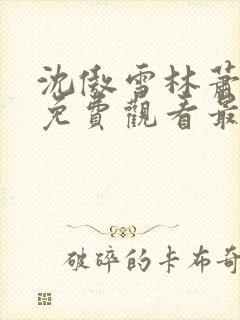 沈傲雪林蕭
免費觀看最
破碎的卡布奇